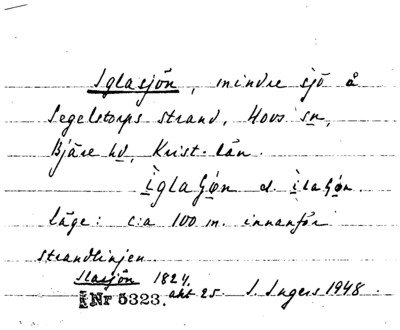 Iglasjön, mindre sjö å
Segelstorps strand, Hovs sn,
Bjäre hd, Krist. län.
läge: c:a 100 m. innanför
strandlinjen.
Ilasjön 1824.
Nr 5323. akt 25. I. Ingers 1948.